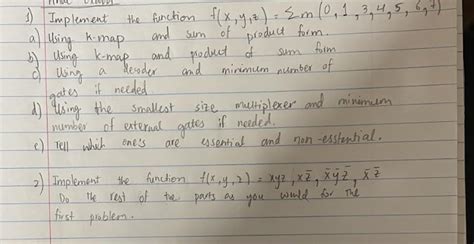 1) Implement the function f(x,y,z) = Σm(0,1,3,4,5,6,7)
a) Using k-map and sum of product form.
b) Using k-map and product of sum form
c) Using a decoder and minimum number of
gates if needed
d) Using the smallest size multiplexer and minimum
number of external gates if needed.
e) Tell which one's are essential and non-esstential.
2) Implement the function f(x,y,z) = xyz, xz̅, x̅y̅z̅, x̅z̅
Do the rest of the parts as you would for the
first problem.